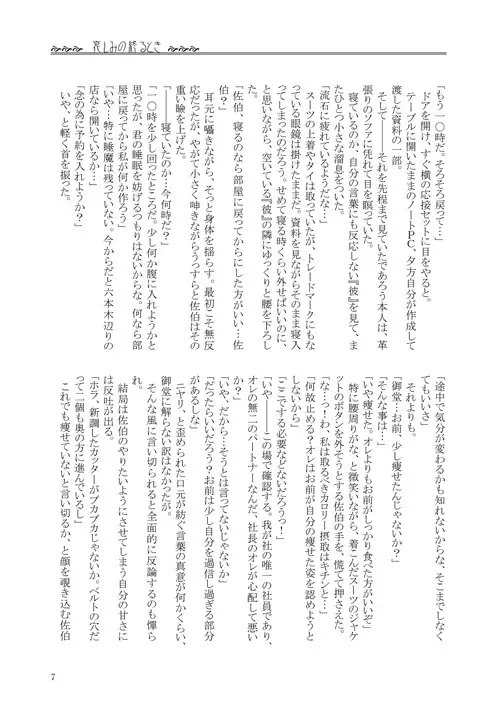 哀しみの終るとき
「もう一〇時だ。そろそろ戻って…」
ドアを開け、すぐ横の応接セットに目をやると。
テーブルに開いたままのノートPC、夕方自分が作成して
渡した資料の一部。
そして――それを先程まで見ていたであろう本人は、革
張りのソファに凭れて目を瞑っていた。
寝ているのか、自分の言葉にも反応しない『彼』を見て、ま
たひとつ小さな溜息をついた。
「流石に疲れているようだな…」
スーツの上着やタイは取っていたが、トレードマークにもな
っている眼鏡は掛けたままだ。資料を見ながらそのまま寝入
ってしまったのだろう。せめて寝る時くらい外せばいいのに、
と思いながら、空いている『彼』の隣にゆっくりと腰を下ろし
た。
「佐伯、寝るのなら部屋に戻ってからにした方がいい…佐
伯？」
耳元に囁きながら、そっと身体を揺らす。最初こそ無反
応だったが、やがて小さく呻きながらうっすらと佐伯はその
重い瞼を上げた。
「――寝ていたのか…今何時だ？」
「一〇時を少し回ったところだ。少し何か腹に入れようかと
思ったが、君の睡眠を妨げるつもりはないからな。何なら部
屋に戻ってから私が何か作ろう」
「いや…特に睡魔は残っていない。今からだと六本木辺りの
店なら開いているか…」
「念の為に予約を入れようか？」
いや、と軽く首を振った。
「途中で気分が変わるかも知れないからな、そこまでしなく
てもいいさ」
それよりも。
「御堂…お前、少し痩せたんじゃないか？」
「そんな事は…」
「いや痩せた。オレよりもお前がしっかり食べた方がいいぞ」
特に腰周りがな、と微笑いながら、着こんだスーツのジャケ
ットのボタンを外そうとする佐伯の手を、慌てて押さえた。
「な…っ？わ、私は取るべきカロリー摂取はキチンと…」
「何故止める？オレはお前が自分の痩せた姿を認めようと
しないから」
「ここでする必要などないだろうっ！」
「いや――この場で確認する。我が社の唯一の社員であり、
オレの無二のパートナーなんだ、社長のオレが心配して悪い
か？」
「いや、だから…そうとは言ってないじゃないか」
「だったらいいだろう？お前は少し自分を過信し過ぎる部分
があるしな」
ニヤリ、と歪められた口元が紡ぐ言葉の真意が何かくらい、
御堂に解らない訳はなかったが。
そんな風に言い切られると全面的に反論するのも憚ら
れ。
結局は佐伯のやりたいようにさせてしまう自分の甘さに
は反吐が出る。
「ホラ、新調したカッターがブカブカじゃないか。ベルトの穴だ
って二個も奥の方に進んでいるし」
これでも痩せていないと言い切れるか、と顔を覗き込む佐伯
7